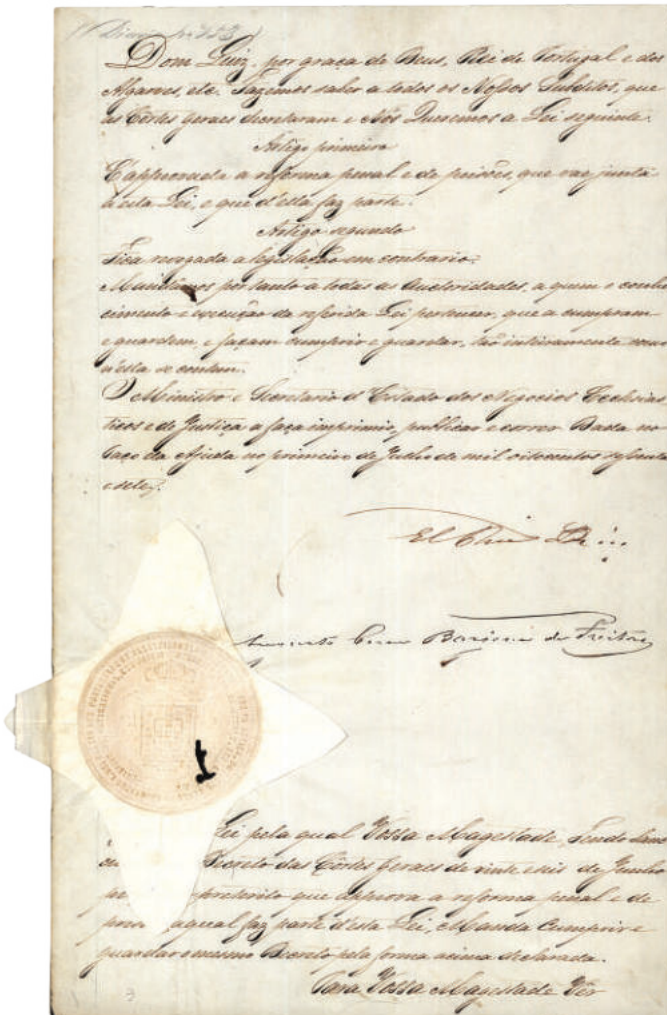 Dom Luiz, por graça de Deus, Rei de Portugal e dos
Algarves, etc. Fazemos saber a todos os Nossos Subditos, que
as Côrtes geraes decretaram e Nós Queremos a Lei seguinte:
Artigo primeiro
É approvada a reforma penal e de prisões, que vae junta
a esta Lei, e que d'ella faz parte.
Artigo segundo
Fica revogada a legislação em contrario.
Mandâmos portanto a todas as Auctoridades, a quem o conhe
cimento e execução da referida Lei pertencer, que a cumpram
e guardem, e façam cumprir e guardar, tão inteiramente como
n'ella se contem.
O Ministro e Secretario d'Estado dos Negocios Ecclesias
ticos e de Justiça a faça imprimir, publicar e correr. Dada no
Paço da Ajuda no primeiro de Julho de mil oitocentos sessenta
e sete.
El Rei
Barjona de Freitas
Lei pela qual Vossa Magestade, Tendo
Decreto das Côrtes Geraes de vinte e seis de Junho
preterito que approva a reforma penal e de
a qual faz parte d'esta Lei, Manda cumprir e
guardar o mesmo Decreto pela forma acima declarada.
Para Vossa Magestade Vêr